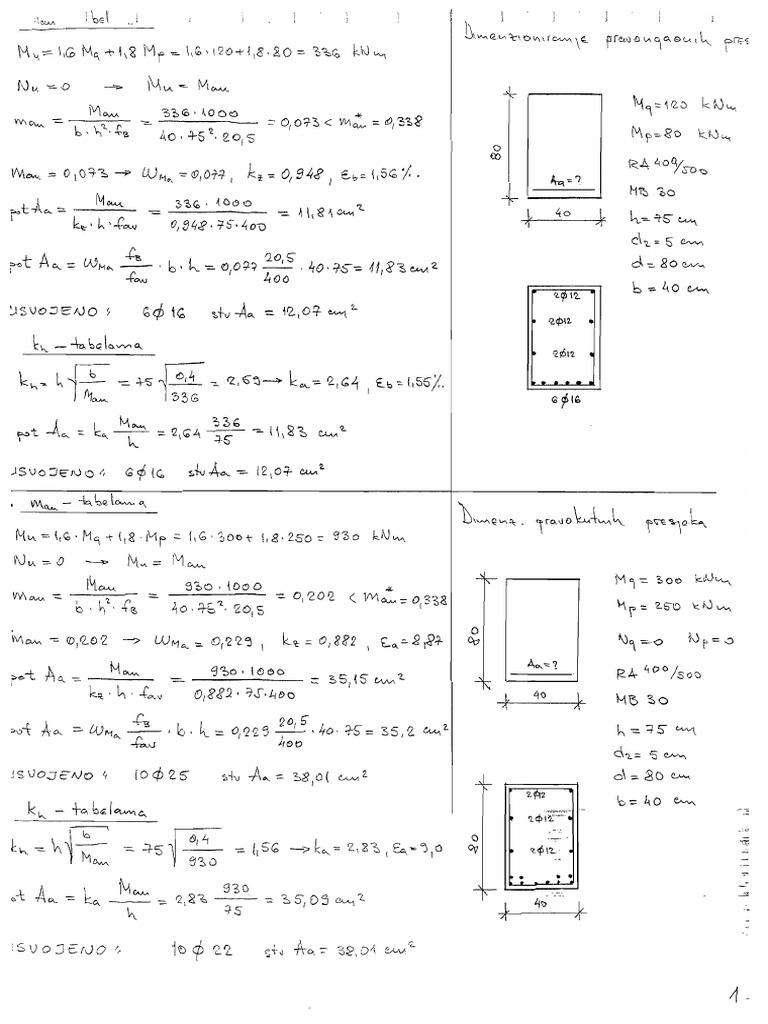 Mu = 1,6 Mq + 1,8 Mp = 1,6·120 + 1,8·80 = 336 kNm
Nu = 0 → Mu = Mau
mau = Mau / b·h²·fB = 336·1000 / 40·75²·20,5 = 0,073 < mau* = 0,338
mau = 0,073 → ωMa = 0,077, kz = 0,948, εb = 1,56‰
pot Aa = Mau / kz·h·fav = 336·1000 / 0,948·75·400 = 11,81 cm²
pot Aa = ωMa fB/fav · b·h = 0,077 20,5/400 · 40·75 = 11,83 cm²
USVOJENO: 6Ø16 stv Aa = 12,07 cm²
kh - tabelama
kh = h √(b/Mau) = 75 √(0,4/336) = 2,59 → ka = 2,64, εb = 1,55‰
pot Aa = ka Mau/h = 2,64 336/75 = 11,83 cm²
USVOJENO: 6Ø16 stv Aa = 12,07 cm²
Dimenzioniranje pravougaonih pres
80
Aa = ?
40
Mq = 120 kNm
Mp = 80 kNm
RA 400/500
MB 30
h = 75 cm
d2 = 5 cm
d = 80 cm
b = 40 cm
2Ø12
2Ø12
2Ø12
6Ø16
mau - tabelama
Mu = 1,6·Mq + 1,8·Mp = 1,6·300 + 1,8·250 = 930 kNm
Nu = 0 → Mu = Mau
mau = Mau / b·h²·fB = 930·1000 / 40·75²·20,5 = 0,202 < mau* = 0,338
mau = 0,202 → ωMa = 0,229, kz = 0,882, εa = 8,87
pot Aa = Mau / kz·h·fav = 930·1000 / 0,882·75·400 = 35,15 cm²
pot Aa = ωMa fB/fav · b·h = 0,229 20,5/400 · 40·75 = 35,2 cm²
USVOJENO: 10Ø25 stv Aa = 38,01 cm²
kh - tabelama
kh = h √(b/Mau) = 75 √(0,4/930) = 1,56 → ka = 2,83, εa = 9,0
ot Aa = ka Mau/h = 2,83 930/75 = 35,09 cm²
USVOJENO: 10Ø22 stv Aa = 38,01 cm²
Dimenz. pravokutnih presjeka
80
Aa = ?
40
Mq = 300 kNm
Mp = 250 kNm
Nq = 0 Np = 0
RA 400/500
MB 30
h = 75 cm
d2 = 5 cm
d = 80 cm
b = 40 cm
2Ø12
2Ø12
2Ø12
80
40
1.